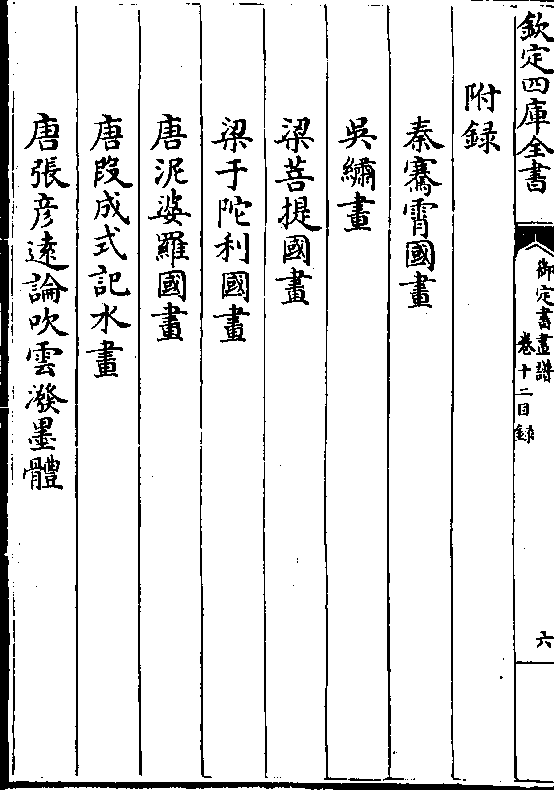 欽定四庫全書
御定書畫譜
卷十二目録
六
附録
秦騫霄國畫
吳繡畫
梁菩提國畫
梁于陀利國畫
唐泥婆羅國畫
唐段成式記水畫
唐張彦遠論吹雲潑墨體